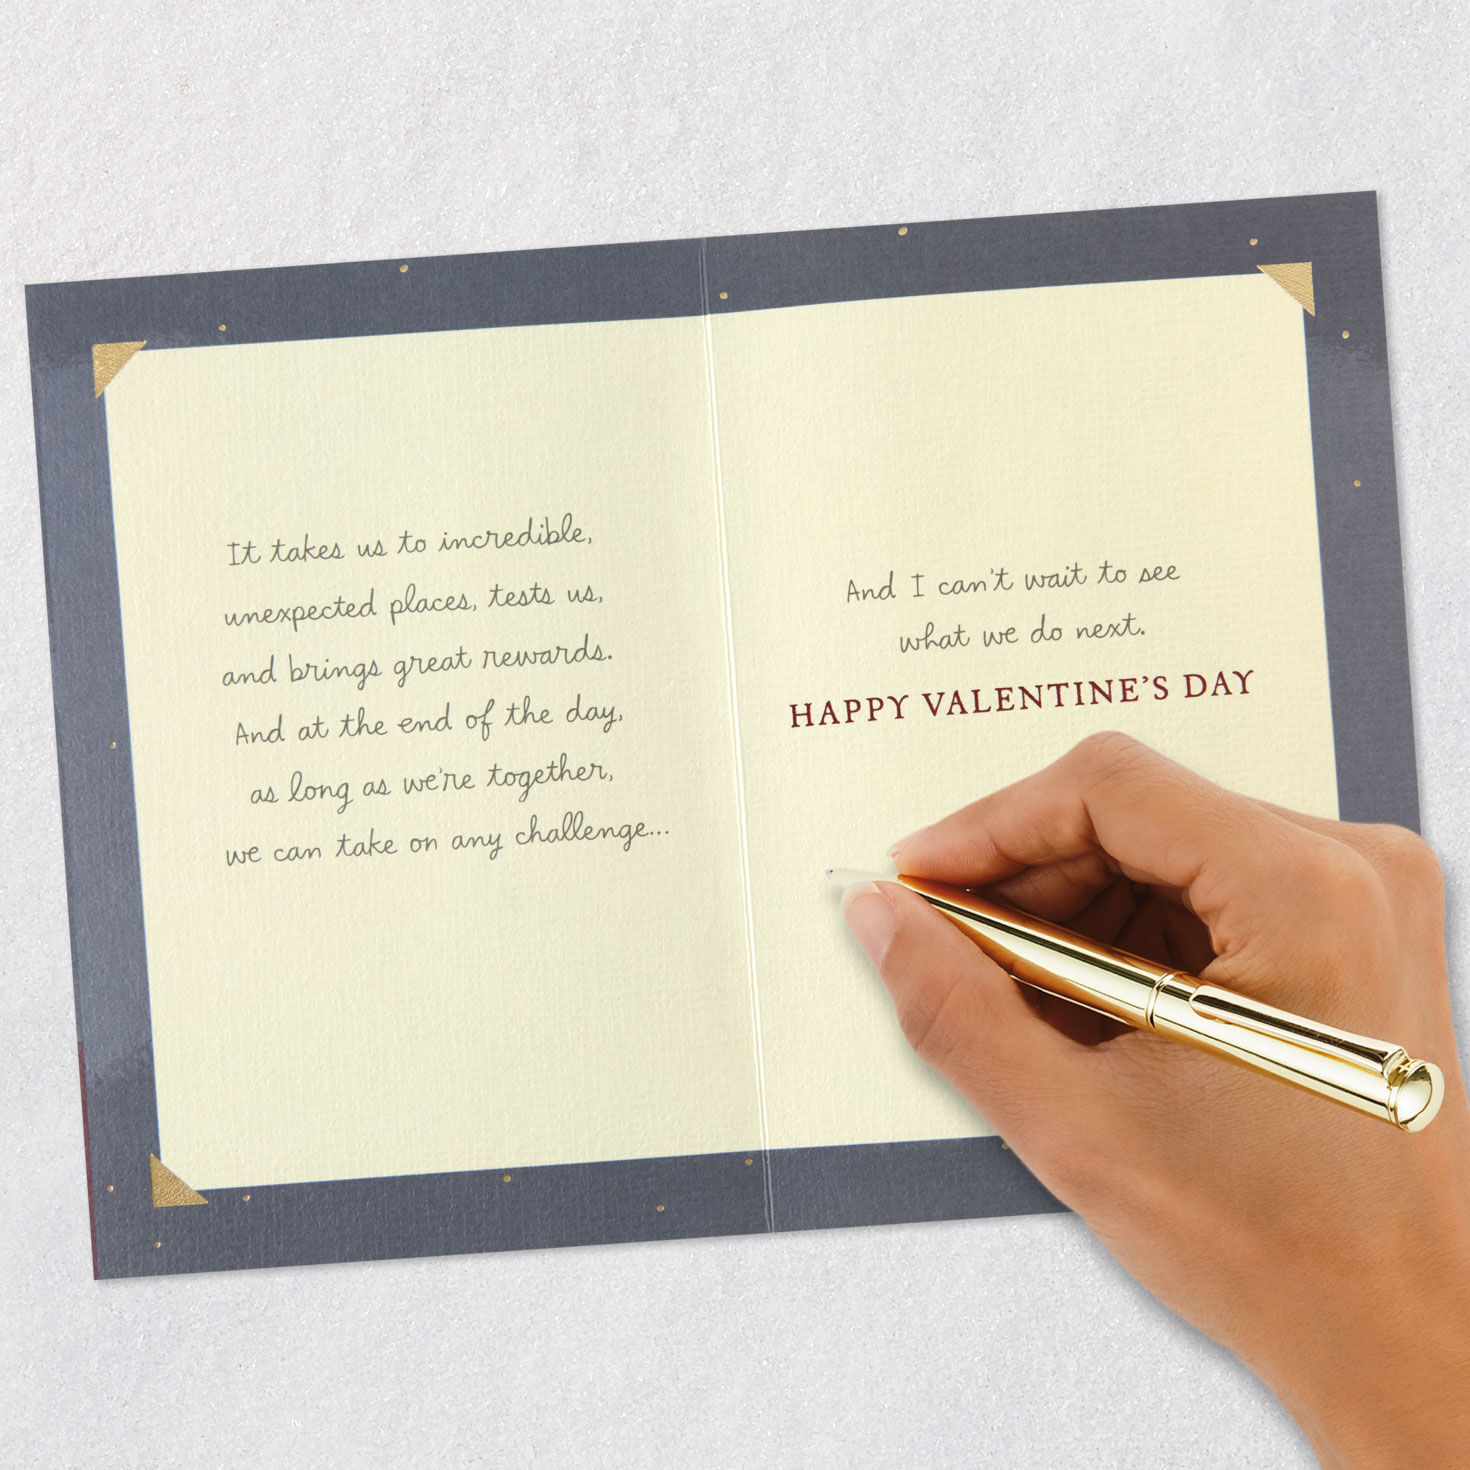 It takes us to incredible,
unexpected places, tests us,
and brings great rewards.
And at the end of the day,
as long as we're together,
we can take on any challenge...
And I can't wait to see
what we do next.
HAPPY VALENTINE'S DAY